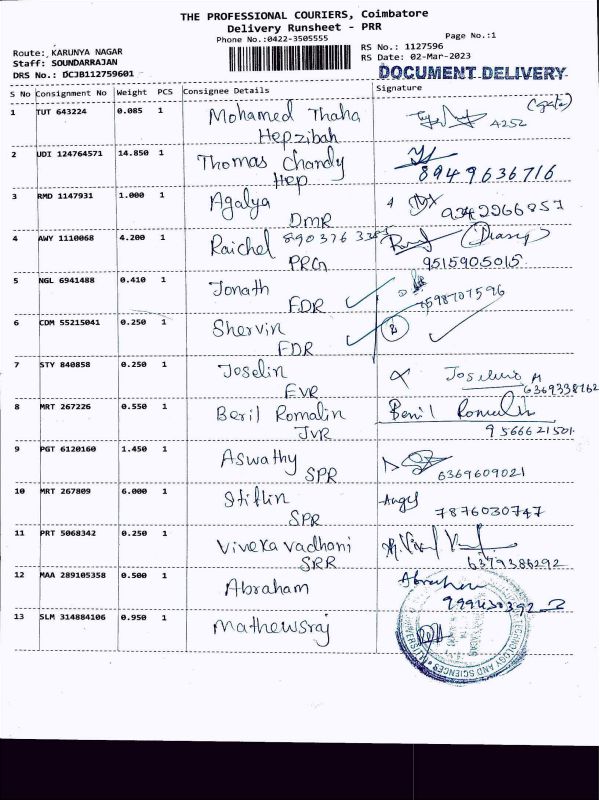 THE PROFESSIONAL COURIERS, Coimbatore
Delivery Runsheet - PRR
Phone No.:0422-3505555
Page No.:1
Route: KARUNYA NAGAR
RS No.: 1127596
Staff: SOUNDARRAJAN
RS Date: 02-Mar-2023
DRS No.: DCJB112759601
DOCUMENT DELIVERY
S No Consignment No Weight PCS Consignee Details Signature
1 TUT 643224 0.085 1 Mohamed Thaha
Hepzibah 4252
2 UDI 124764571 14.850 1 Thomas Chandy
Hep 8949636716
3 RMD 1147931 1.000 1 Agalya
DMR 9342966857
4 AWY 1110068 4.200 1 Raichel
PRGn 9515905015
5 NGL 6941488 0.410 1 Jonath
FDR 7598707596
6 COM 55215041 0.250 1 Shervin B
FDR
7 STY 840858 0.250 1 Joselin
EVR 6369338162
8 MRT 267226 0.550 1 Beril Romalin Beril Romalin
JVR 9566621501
9 PGT 6120160 1.450 1 Aswathy
SPR 6369609021
10 MRT 267809 6.000 1 Stiflin
SPR 7876030747
11 PRT 5068342 0.250 1 Viveka vadhani
SRR 6379386292
12 MAA 289105358 0.500 1 Abraham Abraham
13 SLM 314884106 0.950 1 Mathewsraj
TECHNOLOGY AND SCIENCES